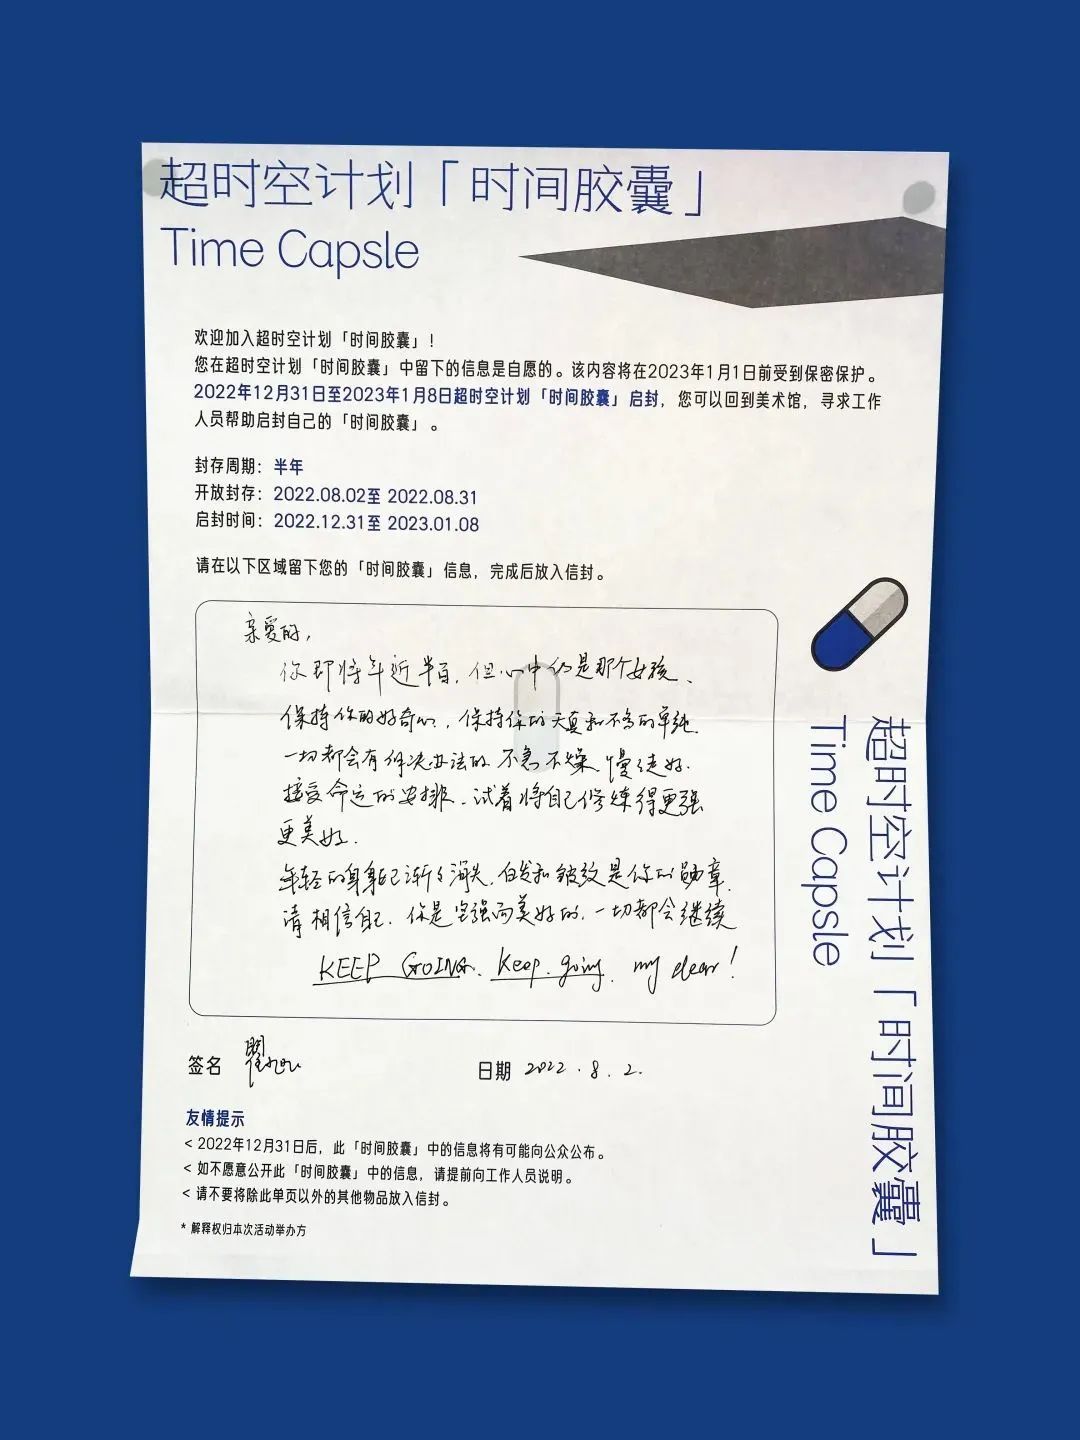 超时空计划「时间胶囊」
Time Capsle
欢迎加入超时空计划「时间胶囊」!
您在超时空计划「时间胶囊」中留下的信息是自愿的。该内容将在2023年1月1日前受到保密保护。
2022年12月31日至2023年1月8日超时空计划「时间胶囊」启封,您可以回到美术馆,寻求工作
人员帮助启封自己的「时间胶囊」。
封存周期:半年
开放封存:2022.08.02至 2022.08.31
启封时间:2022.12.31至 2023.01.08
请在以下区域留下您的「时间胶囊」信息,完成后放入信封。
亲爱的,
你即将年近半百,但心中仍是那个女孩、
保持你的好奇心,保持你的天真和不多的单纯.
一切都会有解决办法的.不急不燥,慢走好.
接受命运的安排、试着将自己修炼得更强
更美好.
年轻的身躯已渐渐消失,白发和皱纹是你的勋章,
请相信自己.你是坚强而美好的,一切都会继续
KEEP GOING. Keep going. my dear!
签名 翟
日期 2022.8.2.
友情提示
< 2022年12月31日后,此「时间胶囊」中的信息将有可能向公众公布。
< 如不愿意公开此「时间胶囊」中的信息,请提前向工作人员说明。
< 请不要将除此单页以外的其他物品放入信封。
* 解释权归本次活动举办方
超时空计划「时间胶囊」
Time Capsle